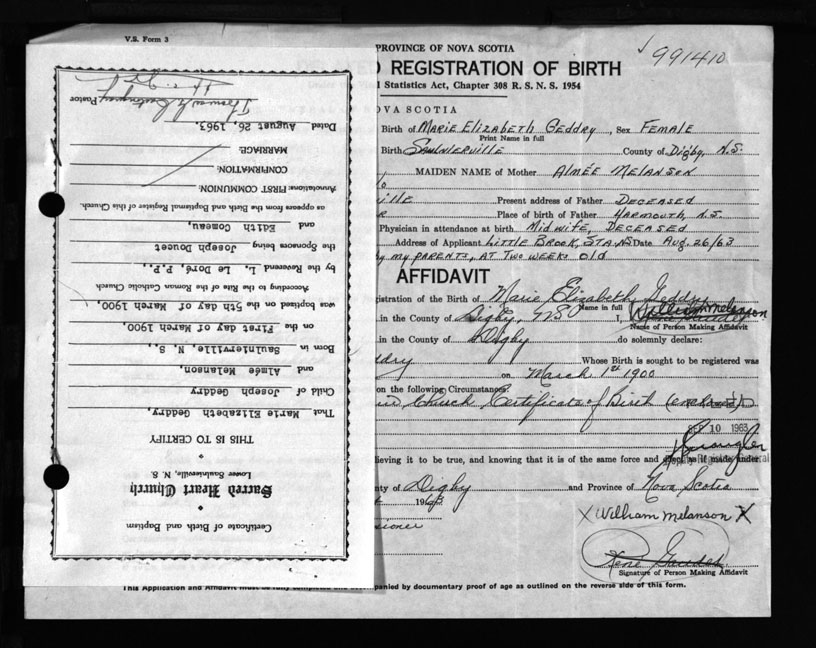 V.S. Form 3
PROVINCE OF NOVA SCOTIA
991410
REGISTRATION OF BIRTH
Statistics Act, Chapter 308 R. S. N. S. 1954
OVA SCOTIA
Birth of MARIE ELIZABETH GEDDRY, Sex FEMALE
Print Name in full
Birth SAULNIERVILLE County of DIGBY, N.S.
MAIDEN NAME of Mother AIMÉE MELANSON
ILLE Present address of Father DECEASED
Place of birth of Father YARMOUTH, N.S.
Physician in attendance at birth MIDWIFE, DECEASED
Address of Applicant LITTLE BROOK, STA. NS Date Aug. 26/63
my PARENTS, AT TWO WEEKS OLD
AFFIDAVIT
istration of the Birth of Marie Elizabeth Geddry
Name in full
in the County of Digby, I, William Melanson
Name of Person Making Affidavit
in the County of Digby do solemnly declare:
ddry Whose Birth is sought to be registered was
on March 1st 1900
on the following Circumstances
Church Certificate of Birth (enclosed)
10 1963
lieving it to be true, and knowing that it is of the same force and effect as if made under
ty of Digby and Province of Nova Scotia
1963
X William Melanson X
ssioner
Signature of Person Making Affidavit
This Application and Affidavit must be fully completed and accompanied by documentary proof of age as outlined on the reverse side of this form.
Certificate of Birth and Baptism
Sacred Heart Church
Lower Saulnierville, N. S.
THIS IS TO CERTIFY
That Marie Elizabeth Geddry,
Child of Joseph Geddry
and Aimée Melanson
Born in Saulnierville, N. S.,
on the First day of March 1900,
was baptized on the 5th day of March, 1900.
According to the Rite of the Roman Catholic Church
by the Reverend L. Le Doré, P.P.,
the Sponsors being Joseph Doucet
and Edith Comeau
as appears from the Birth and Baptismal Register of this Church.
Annotations: FIRST COMMUNION:
CONFIRMATION:
MARRIAGE:
Dated August 26, 1963.
Pastor